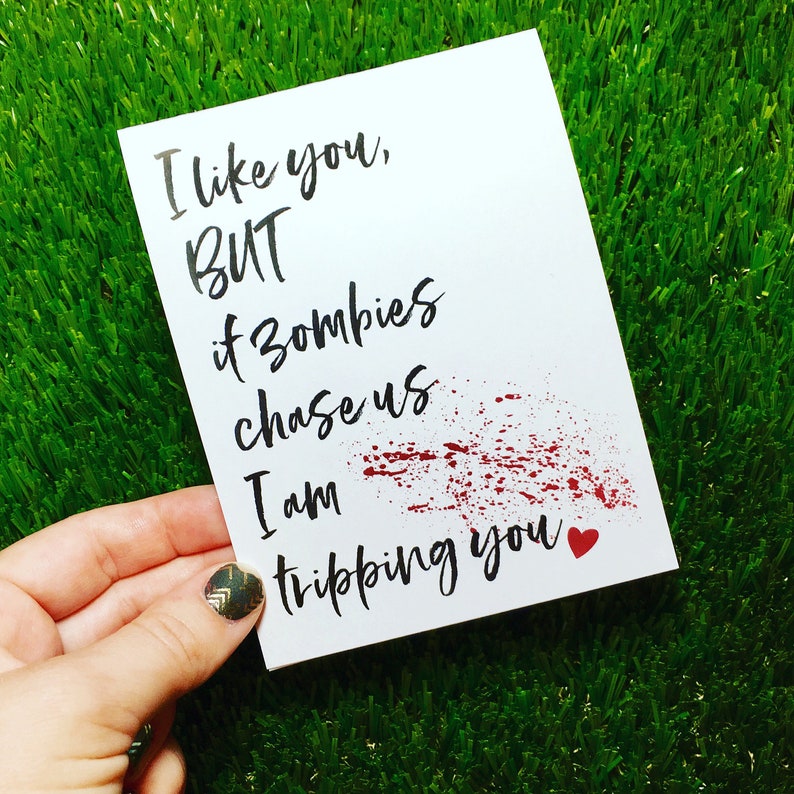 I like you,
BUT
if zombies
chase us
I am
tripping you